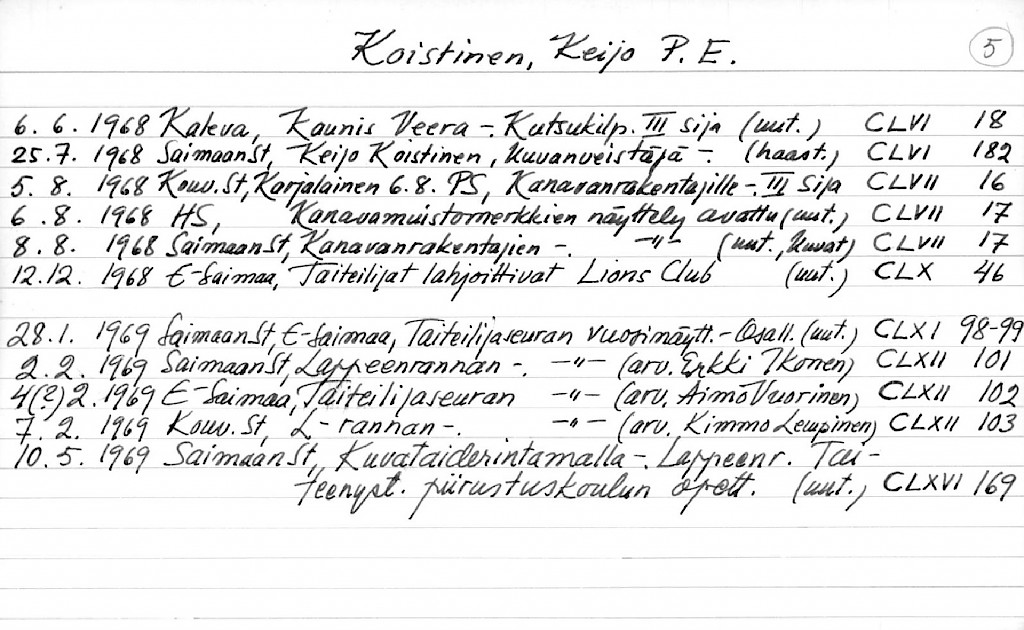 Koistinen, Keijo P. E. 5
6. 6. 1968 Kaleva, Kaunis Veera -. Kutsukilp. III sija (uut.) CLVI 18
25.7. 1968 SaimaanSt, Keijo Koistinen, kuvanveistäjä -. (haast.) CLVI 182
5. 8. 1968 Kouv.St, Karjalainen 6.8. PS, Kanavanrakentajille -. III sija CLVII 16
6.8. 1968 HS, Kanavamuistomerkkien näyttely avattu (uut.) CLVII 17
8.8. 1968 SaimaanSt, Kanavanrakentajien -. -"- (uut., kuvat) CLVII 17
12.12. 1968 E-Saimaa, Taiteilijat lahjoittivat Lions Club (uut.) CLX 46
28.1. 1969 SaimaanSt, E-Saimaa, Taiteilijaseuran vuosinäytt.- Osall. (uut.) CLXI 98-99
2.2. 1969 SaimaanSt, Lappeenrannan -. -"- (arv. Erkki Ikonen) CLXII 101
4(?)2. 1969 E-Saimaa, Taiteilijaseuran -"- (arv. Aimo Vuorinen) CLXII 102
7. 2. 1969 Kouv.St, L-rannan -. -"- (arv. Kimmo Lempinen) CLXII 103
10. 5. 1969 SaimaanSt, Kuvataiderintamalla -. Lappeenr. Tai-
teenyst. piirustuskoulun opett. (uut.) CLXVI 169